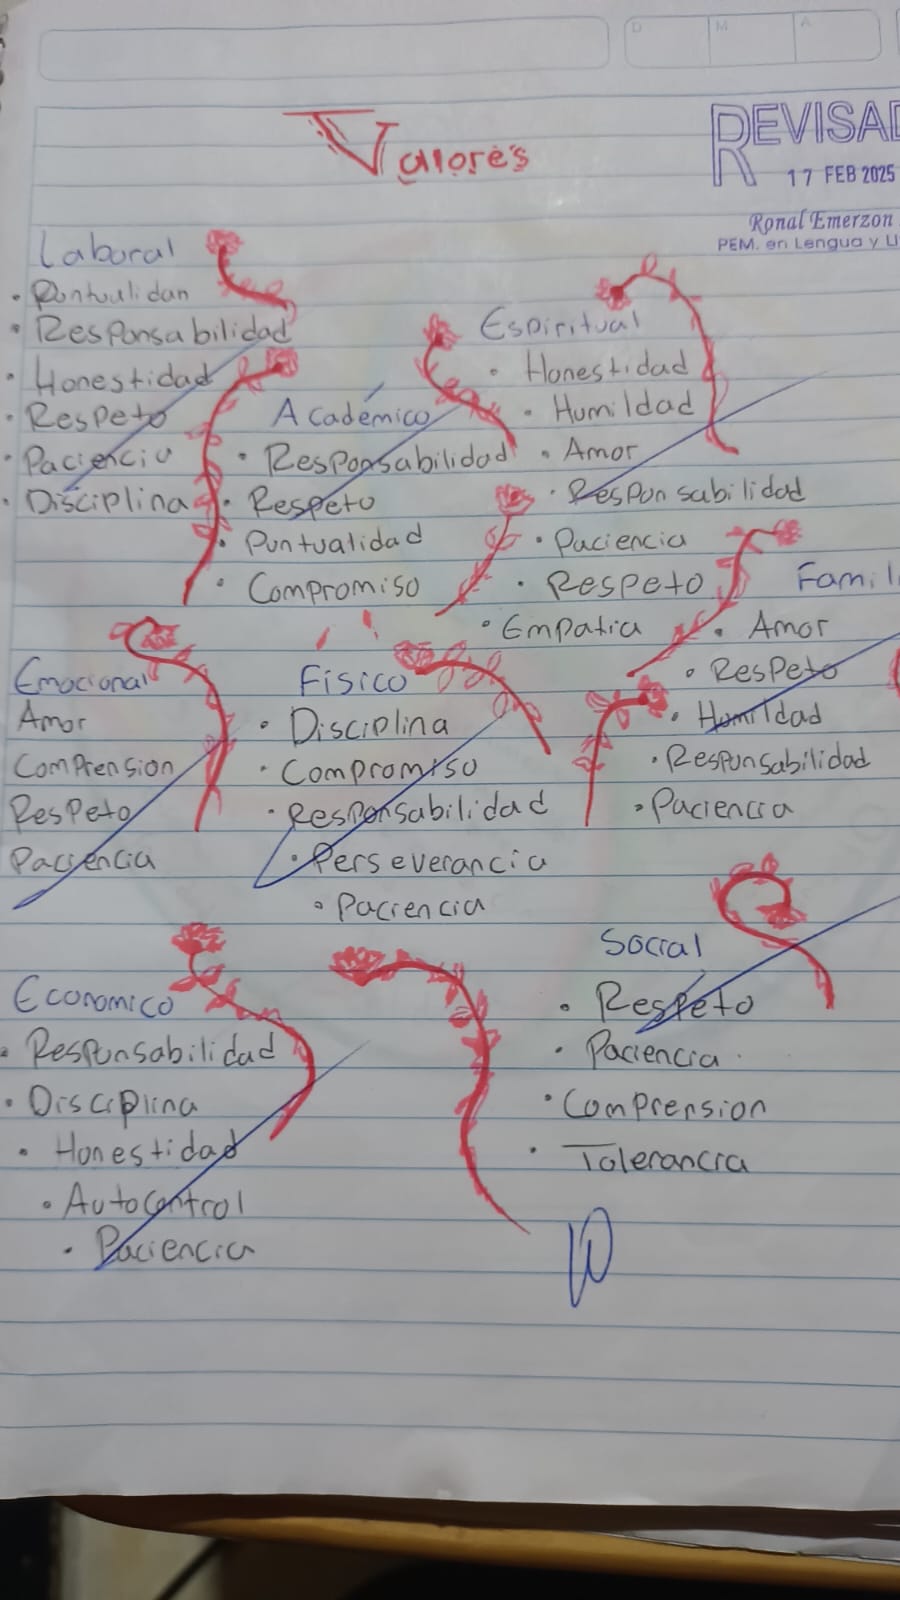 D M A
Valores
REVISAD
17 FEB 2025
Ronal Emerzon
PEM. en Lengua y Li
Laboral
• Puntualidan
• Responsabilidad
• Honestidad
• Respeto
• Paciencia
• Disciplina
Académico
• Responsabilidad
• Respeto
• Puntualidad
• Compromiso
Espiritual
• Honestidad
• Humildad
• Amor
• Responsabilidad
• Paciencia
• Respeto
• Empatia
Famil
• Amor
• Respeto
• Humildad
• Responsabilidad
• Paciencia
Emocional
Amor
Comprension
Respeto
Paciencia
Físico
• Disciplina
• Compromiso
• Responsabilidad
• Perseverancia
• Paciencia
Economico
• Responsabilidad
• Disciplina
• Honestidad
• Autocontrol
• Paciencia
Social
• Respeto
• Paciencia
• Comprension
• Tolerancia
10